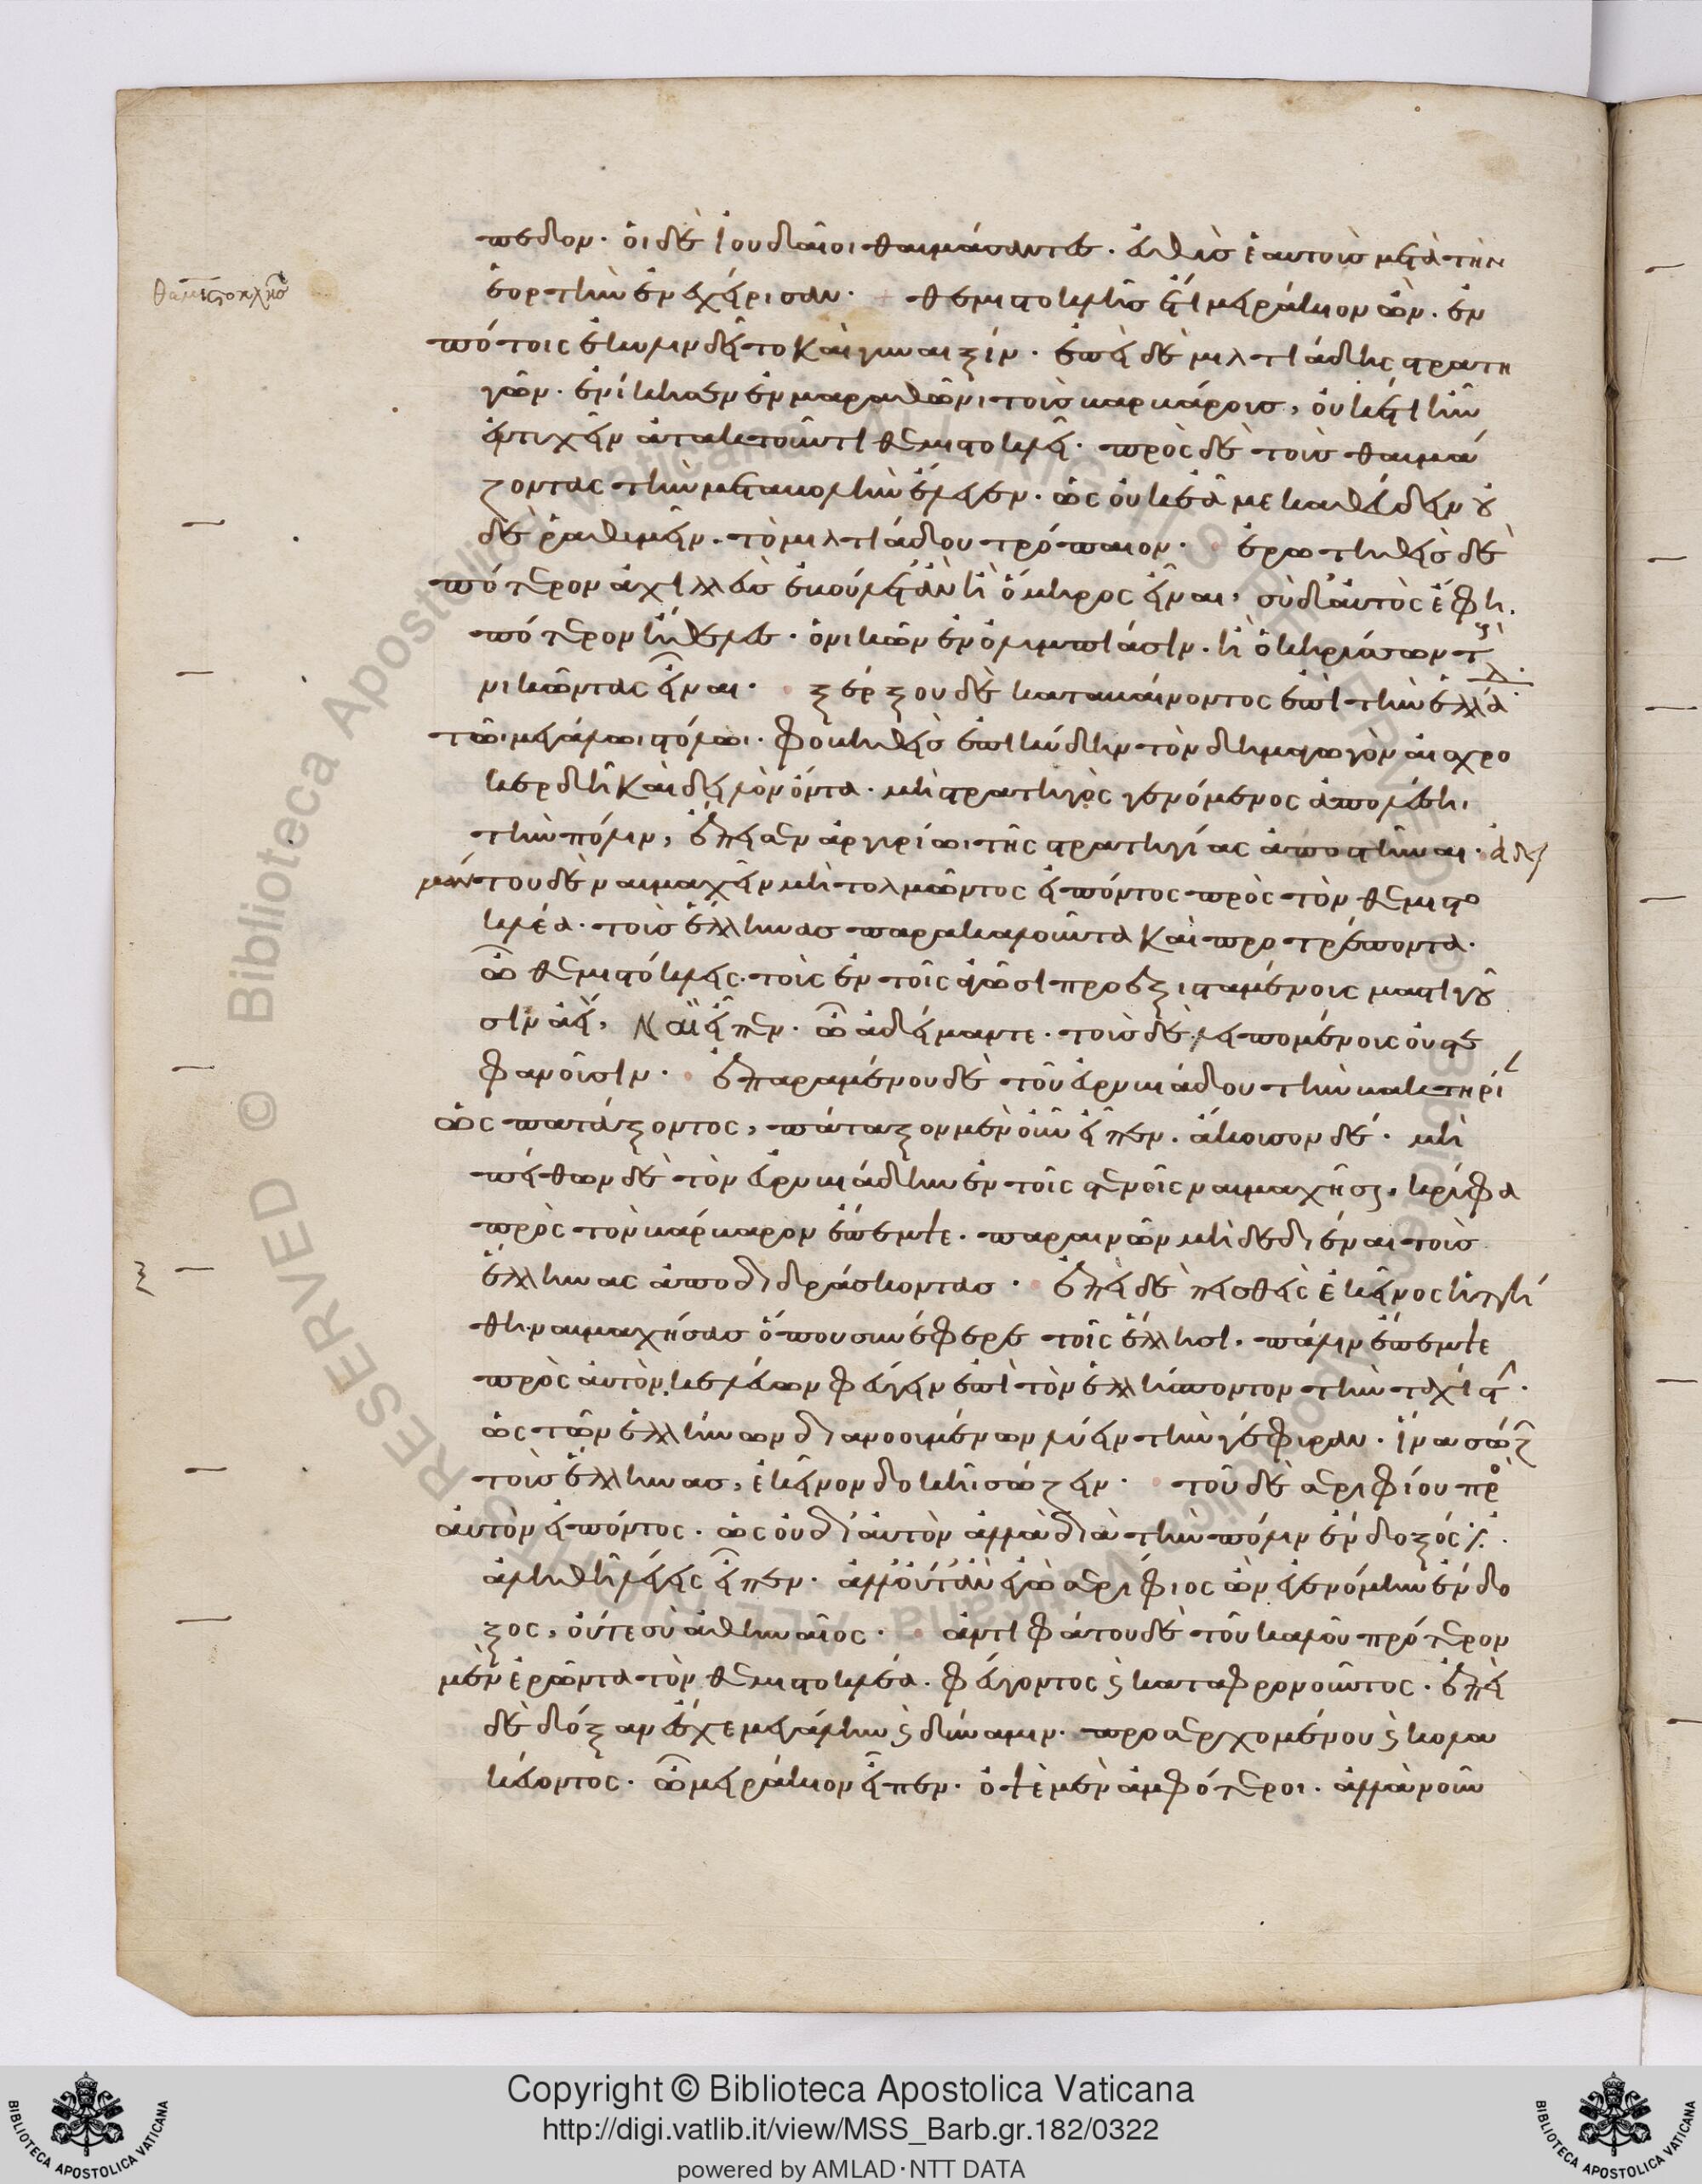 θεμιστοκλῆς
πεδον· οἱ δὲ ἰουδαῖοι θαυμάσαντες· εὐθὺς ἑαυτοὺς μετὰ τὴν
ἑορτὴν ἐνεχείρισαν· θεμιστοκλῆς ἔτι μειράκιον ὢν· ἐν
πότοις ἐκυλινδεῖτο καὶ γυναιξίν· ἐπεὶ δὲ μιλτιάδης στρατη
γῶν· ἐνίκησεν ἐν μαραθῶνι τοὺς βαρβάρους, οὐκέτι ἦν
ἐντυχεῖν ἀτακτοῦντι θεμιστοκλεῖ· πρὸς δὲ τοὺς θαυμά
ζοντας τὴν μεταβολὴν ἔλεγεν· ὡς οὐκ ἐᾷ με καθεύδειν οὐ
δὲ ῥαθυμεῖν· τὸ μιλτιάδου τρόπαιον· ἐρωτηθεὶς δὲ
πότερον ἀχιλλεὺς ἐβούλετ' ἂν ἢ ὅμηρος εἶναι, σὺ δ' αὐτὸς ἔφη·
πότερον ἤθελες· ὁ νικῶν ἐν ὀλυμπιάσιν· ἢ ὁ κηρύσσων τοὺς
νικῶντας εἶναι· ξέρξου δὲ καταβαίνοντος ἐπὶ τὴν ἑλλάδα
τῶι μεγάλωι στόλωι· φοβηθεὶς ἐπικύδην τὸν δημαγωγὸν αἰσχρο
κερδῆ καὶ δειλὸν ὄντα· μὴ στρατηγὸς γενόμενος ἀπολέσηι
τὴν πόλιν, ἔπεισεν ἀργυρίωι τῆς στρατηγίας ἀποστῆναι· ἀδει
μάντου δὲ ναυμαχεῖν μὴ τολμῶντος εἰπόντος πρὸς τὸν θεμιστο
κλέα· τοὺς ἕλληνας παρακαλοῦντα καὶ προτρέποντα·
ὦ θεμιστόκλεις· τοὺς ἐν τοῖς ἀγῶσι προεξισταμένους μαστιγοῦ
σιν ἀεί, ναὶ εἶπεν· ὦ ἀδείμαντε· τοὺς δὲ λειπομένους οὐ στε
φανοῦσιν· ἐπαραμένου δὲ τοῦ εὐρυβιάδου τὴν βακτηρί
ὡς πατάξοντος, πάταξον μὲν οὖν εἶπεν· ἄκουσον δέ· μὴ
πείθων δὲ τὸν εὐρυβιάδην ἐν τοῖς στενοῖς ναυμαχῆσαι, κρύφα
πρὸς τὸν βάρβαρον ἔπεμψε· παραινῶν μὴ δεδιέναι τοὺς
ἕλληνας ἀποδιδράσκοντας· ἐπεὶ δὲ πεισθεὶς ἐκεῖνος ἡττή
θη· ναυμαχήσας ὅπου συνέφερε τοῖς ἕλλησι· πάλιν ἔπεμψε
πρὸς αὐτὸν· κελεύων φεύγειν ἐπὶ τὸν ἑλλήσποντον τὴν ταχίστην·
ὡς τῶν ἑλλήνων διανοουμένων λύειν τὴν γέφυραν· ἵνα σώζων
τοὺς ἕλληνας, ἐκεῖνον δοκῆι σώζειν· τοῦ δὲ σεριφίου πρὸς
αὐτὸν εἰπόντος· ὡς οὐ δι' αὐτὸν ἀλλὰ διὰ τὴν πόλιν ἔνδοξός ἐστιν·
ἀληθῆ λέγεις εἶπεν· ἀλλ' οὔτ' ἂν ἐγὼ σερίφιος ὢν ἐγενόμην ἔνδο
ξος, οὔτε σὺ ἀθηναῖος· ἀντιφάτου δὲ τοῦ καλοῦ πρότερον
μὲν ἐρῶντα τὸν θεμιστοκλέα· φεύγοντος καὶ καταφρονοῦντος· ἐπεὶ
δὲ δόξαν ἔσχε μεγάλην καὶ δύναμιν· προσερχομένου καὶ κολα
κεύοντος· ὦ μειράκιον εἶπεν· ὀψὲ μὲν ἀμφότεροι· ἀλλὰ νοῦν
Copyright © Biblioteca Apostolica Vaticana
http://digi.vatlib.it/view/MSS_Barb.gr.182/0322
powered by AMLAD·NTT DATA